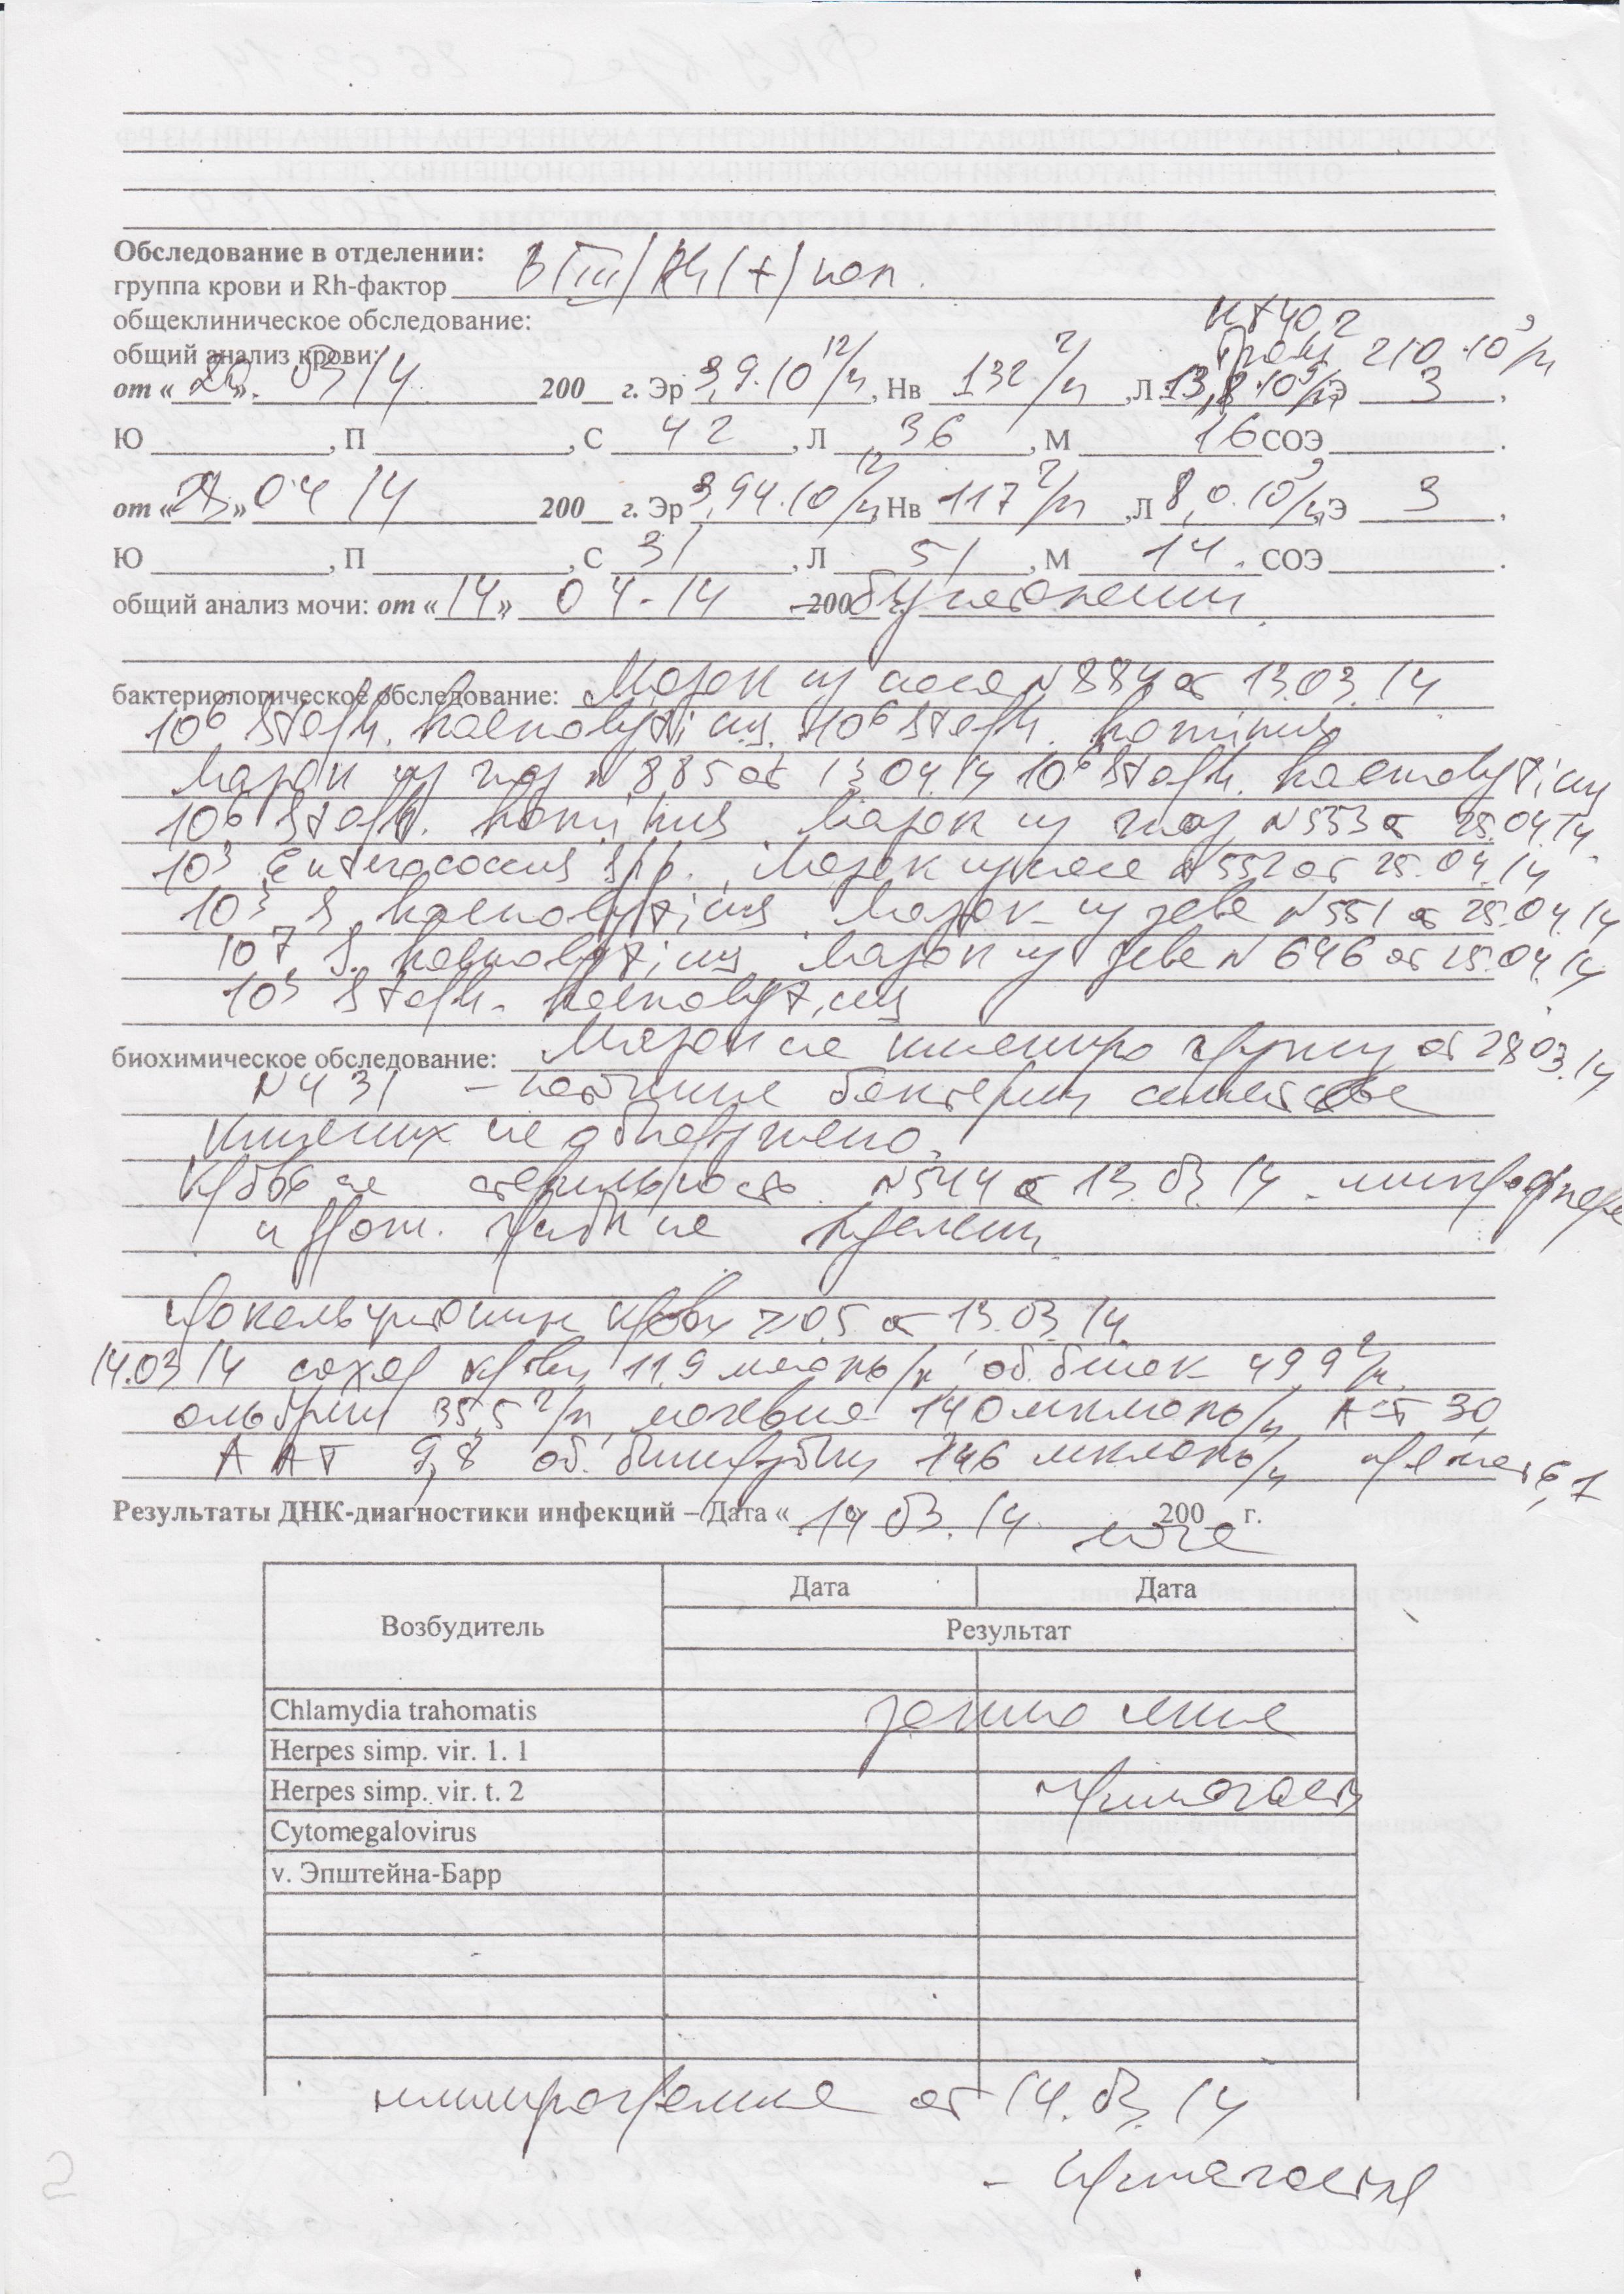 Обследование в отделении:
группа крови и Rh-фактор B(III) Rh(+) пол.
общеклиническое обследование:
Ht 40,2
общий анализ крови: Тром 210·10⁹/л
от «20» 03 14 200__ г. Эр 3,9·10¹²/л, Нв 132 г/л, Л 13,8·10⁹/л, Э 3,
Ю ____, П ____, С 42, Л 36, М 16 СОЭ ____.
от «» 04 14 200__ г. Эр 3,94·10¹²/л, Нв 117 г/л, Л 8,0·10⁹/л, Э 3,
Ю ____, П ____, С 31, Л 51, М 14. СОЭ ____.
общий анализ мочи: от «14» 04.14 200 б/патологии.
бактериологическое обследование: Мазок из носа N 884 от 13.03.14
10⁶ Staph. haemolyticus, 10⁶ Staph. hominus
Мазок из глаз N 885 от 13.04.14 10⁶ Staph. haemolyticus
10⁶ Staph. hominus Мазок из глаз N 553 от 25.04.14.
10³ Enterococcus spp. Мазок из носа N 552 от 25.04.14
10³ S. haemolyticus Мазок из зева N 551 от 25.04.14
10⁷ S. haemolyticus Мазок из зева N 646 от 25.04.14
10³ Staph. haemolyticus
биохимическое обследование: Мазок на кишечную группу от 28.03.14
N 431 – патогенные бактерии семейства
кишечных не обнаружено.
Кровь на стерильность N 544 от 13.03.14 – микрофлора
и грибы не выделены
Прокальцитонин крови ≥0,5 от 13.03.14.
14.03.14 сахар крови 11,9 ммоль/л, об. белок 49,9 г/л,
альбумин 35,5 г/л, мочевина 140 мкмоль/л, АСТ 30,
ААТ 9,8 об. билирубин 146 мкмоль/л 6,1
Результаты ДНК-диагностики инфекций – Дата «14 03.14 200 г.
моча
Возбудитель Дата Дата
Результат
Chlamydia trahomatis
Herpes simp. vir. 1. 1
Herpes simp. vir. t. 2
Cytomegalovirus
v. Эпштейна-Барр
от 14.03.14